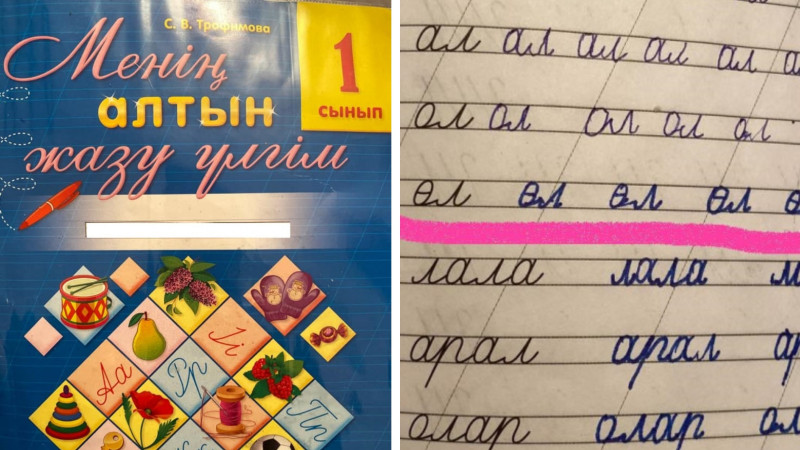 С. В. Трофимова
Менің
алтын
жазу үлгім
1
СЫНЫП
Аа
Рр
Іі
Пп
ал ал ал ал ал
ол ол ол ол ол
өл өл өл өл ө
лала лала
арал арал ар
олар олар ол